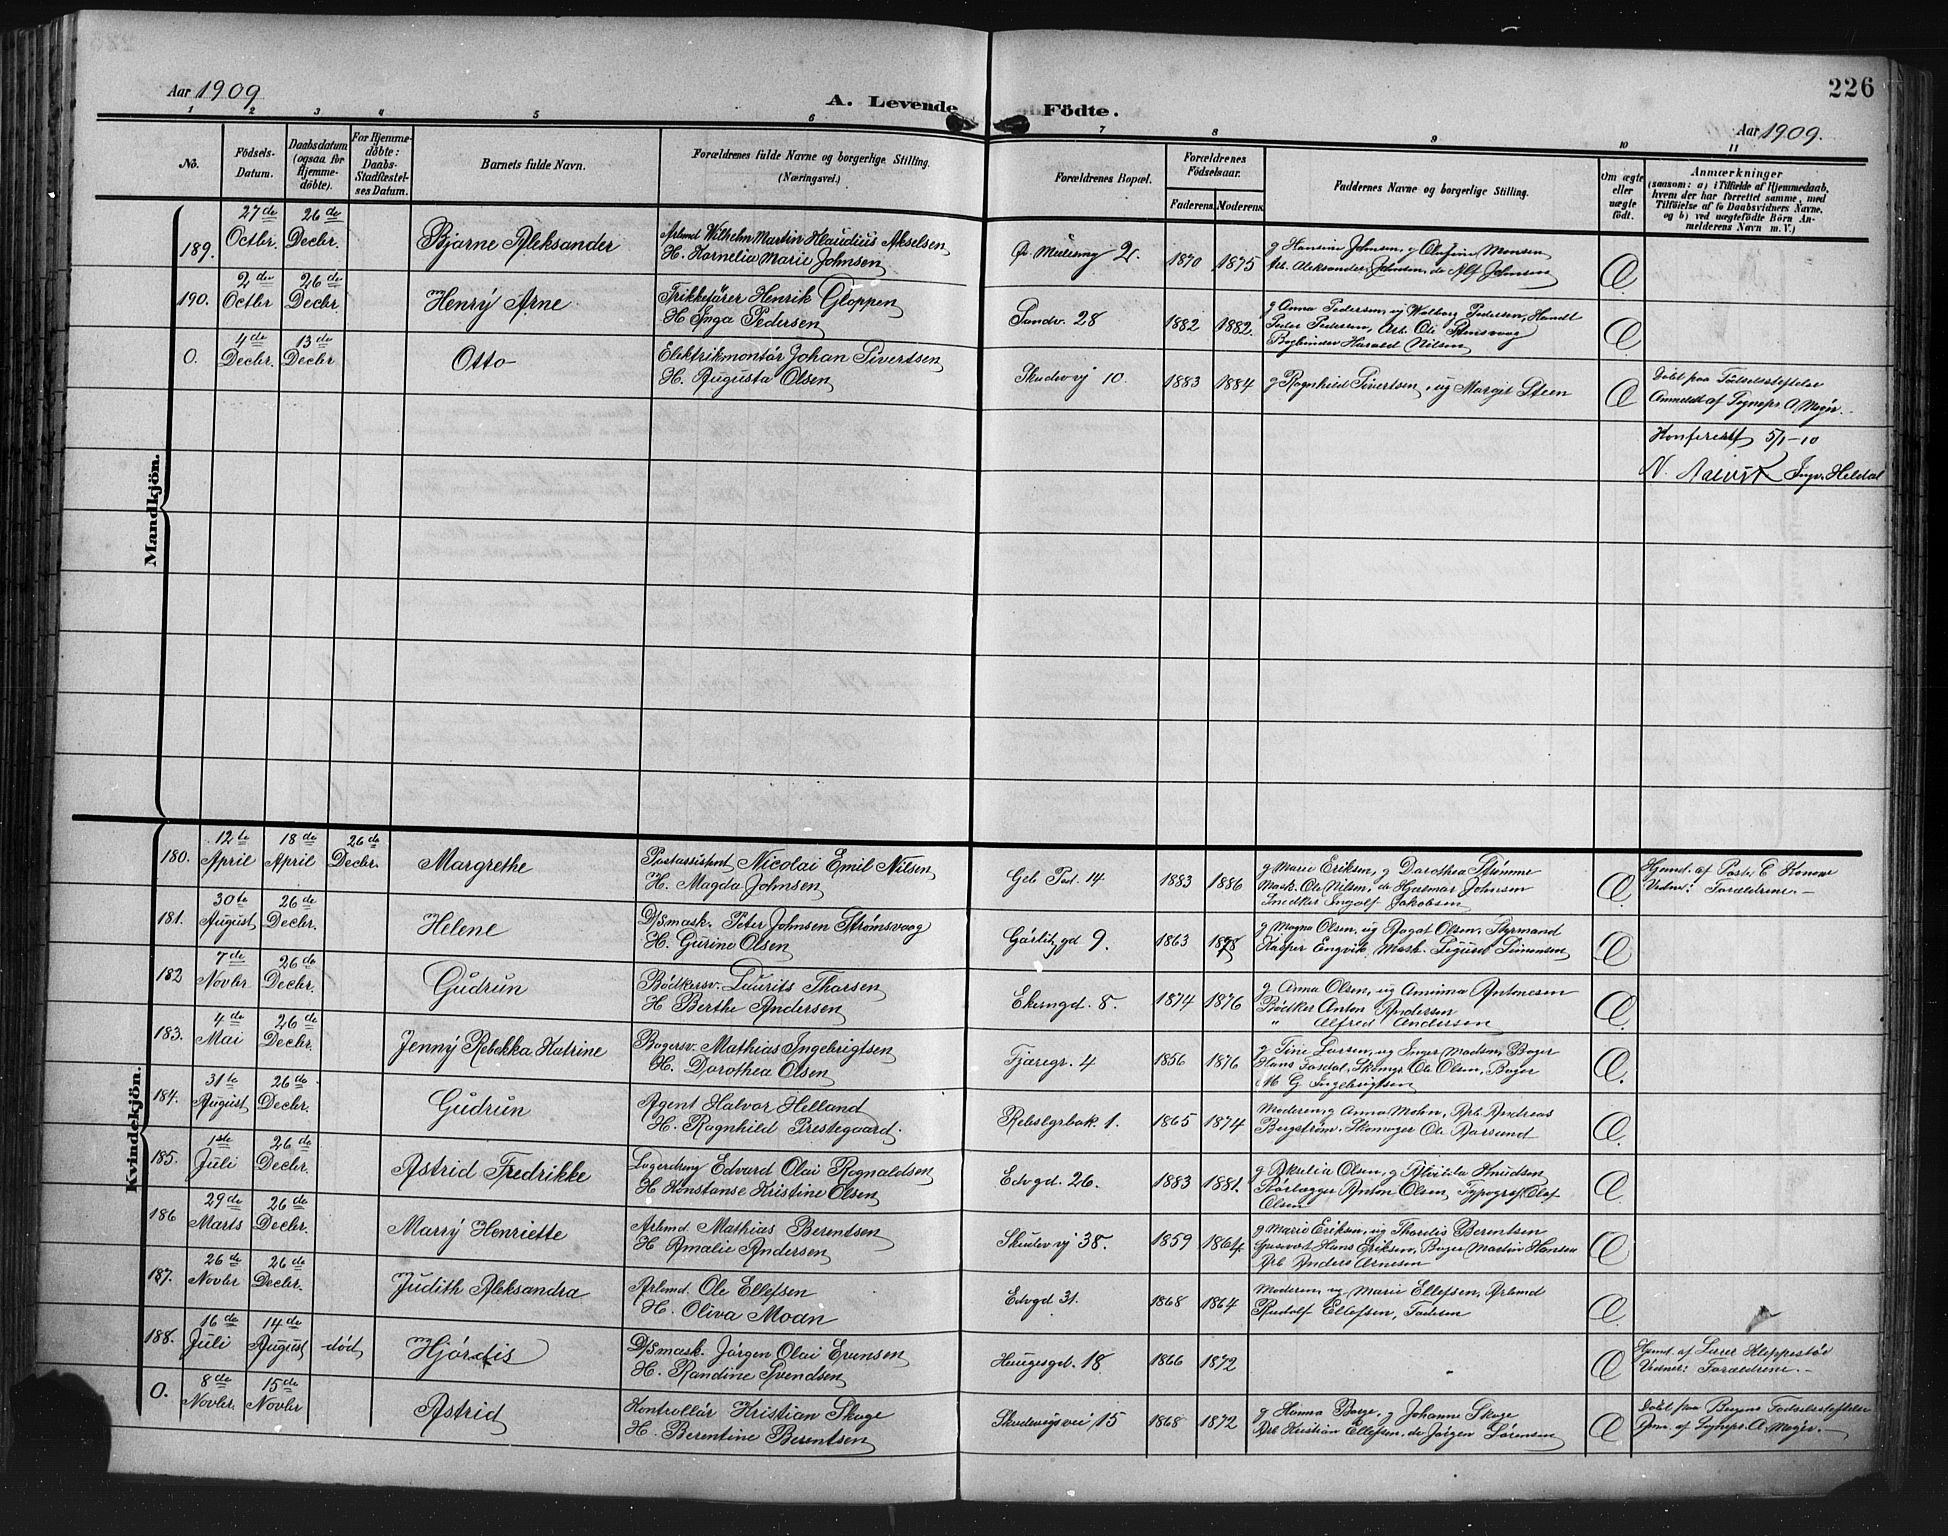 Aar 1909
A. Levende Födte.
226
Aar 1909.
1 2 3 4 5 6 7 8 9 10 11
No.
Födsels-
Datum.
Daabsdatum
(ogsaa for
Hjemme-
döbte).
For Hjemme-
döbte:
Daabs-
Stadfæstel-
ses Datum.
Barnets fulde Navn.
Forældrenes fulde Navne og borgerlige Stilling.
(Næringsvei.)
Forældrenes Bopæl.
Forældrenes
Födselsaar.
Faderens. Moderens.
Faddernes Navne og borgerlige Stilling.
Om ægte
eller
uægte
födt.
Anmærkninger
(saasom: a) i Tilfælde af Hjemmedaab,
hvem der har forrettet samme, med
Tilföielse af to Daabsvidners Navne,
og b) ved uægtefödte Börn An-
melderens Navn m. V.)
Mandkjön.
189.
27de Octbr.
26de Decbr.
Bjarne Aleksander
Arbmd Wilhelm Martin Klaudius Akselsen
H. Kornelia Marie Johnsen
1870 1875
g Hansine Johnsen, g Olufine Monsen
Arb. Aleksander Johnsen, do Alf Johnsen
190.
2de Octbr
26de Decbr.
Henrÿ Arne
Trikkefører Henrik Gloppen
H. Inga Pedersen
Sandv. 28
1882 1882.
g Anna Pedersen, ug Walborg Pedersen, Handl
Peder Pedersen, Arb. Ole
Bogbinder Harald Nilsen
0.
4de Decbr.
13de Decbr
Otto
Elektrikmontör Johan Sivertsen
H. Augusta Olsen
Skudevvj 10.
1883 1884
g Ragnhild Sivertsen, ug Margit Steen
Döbt paa Födselsstiftelse
Anmeldt af Sognepr. A Meyer.
Konferert 5/1-10
N. Ingv. Heldal
Kvindekjön.
180.
12te April
18de April
26de Decbr.
Margrethe
Postassistent Nicolai Emil Nilsen
H. Magda Johnsen
Geb Pad. 14
1883 1886
g Marie Eriksen, g Dorothea Stömme
Mask. Ole Nilsen, do Hjalmar Johnsen
Snedker Ingolf Jakobsen
Hjemd. af Past. E Honow
Vidner: Forældrene.
181.
30te August
26de Decbr.
Helene
D/Smask. Peter Johnsen Strømsvaag
H. Gurine Olsen
9.
1863 1878
g Magna Olsen, ug Aagot Olsen, Styrmand
Kasper Engvik, Mask. Sigurd Simonsen
182
7de Novbr.
26de Decbr.
Gudrun
Bödkersv. Laurits Tharsen
H. Berthe Andersen
Ekerngd. 8.
1874 1876
g Anna Olsen, ug Amunna Antonesen
Bödker Anton Andersen
" Alfred Andersen
183.
4de Mai
26de Decbr.
Jennÿ Rebekka Katrine
Bogersv. Mathias Ingebrigtsen
H. Dorothea Olsen
Fjæregr. 4
1856 1876
g Tine Larsen, ug Inger Madsen, Bager
Hans Fosdal, Skomgr Ole Olsen, Bager
M G Ingebrigtsen
184.
31te August
26de Decbr.
Gudrun
Agent Halvor Helland
H. Ragnhild Prestegaard.
Rebslgrbak. 1.
1865 1874
Moderen, g Anna Mohn, Arb. Andreas
Bergstrøm, Skomager Ole Aarsand
185.
1ste Juli
26de Decbr.
Astrid Fredrikke
Lagerdreng Edvard Olai Rognaldsen
H Konstanse Kristine Olsen
Edvgd. 26.
1883 1881.
g Akselia Olsen, g Alvilda Knudsen
Anton Olsen, Typograf Olaf
Olsen
186
29de Marts
26de Decbr.
Marrÿ Henriette
Arbmd. Mathias Berentsen
H Amalie Andersen
Skutev vj 38.
1859 1864
g Marie Eriksen, ug Thordis Berentsen
Hans Eriksen, Bager Martin Hansen
Arb. Anders Arnesen
187.
26de Novbr
26de Decbr.
Judith Aleksandra
Arbmd. Ole Ellefsen
H. Oliva Moan
Edvgd 31.
1868 1864
Moderen, ug Marie Ellefsen, Arbmd
Rudolf Ellefsen, Faderen
188.
16de Juli
14de August
död
Hjördis
D/Smask. Jörgen Olai Evensen
H. Randine Svendsen
Haugesgd. 18
1866 1872
Hjemd. af Lærer Kleppestöe
Vidner: Forældrene
0.
8de Novbr.
15de Novbr
Astrid
Kontrollör Kristian Skage
H. Berentine Berentsen
Skudevigsvei 15
1868 1872
g Hanna Borge, g Johanne Skage
Arb Kristian Ellefsen, do Jörgen Sörensen
Döbt paa Bergens Födselsstiftelse
Anm. af Sognepr. A. Meyer.